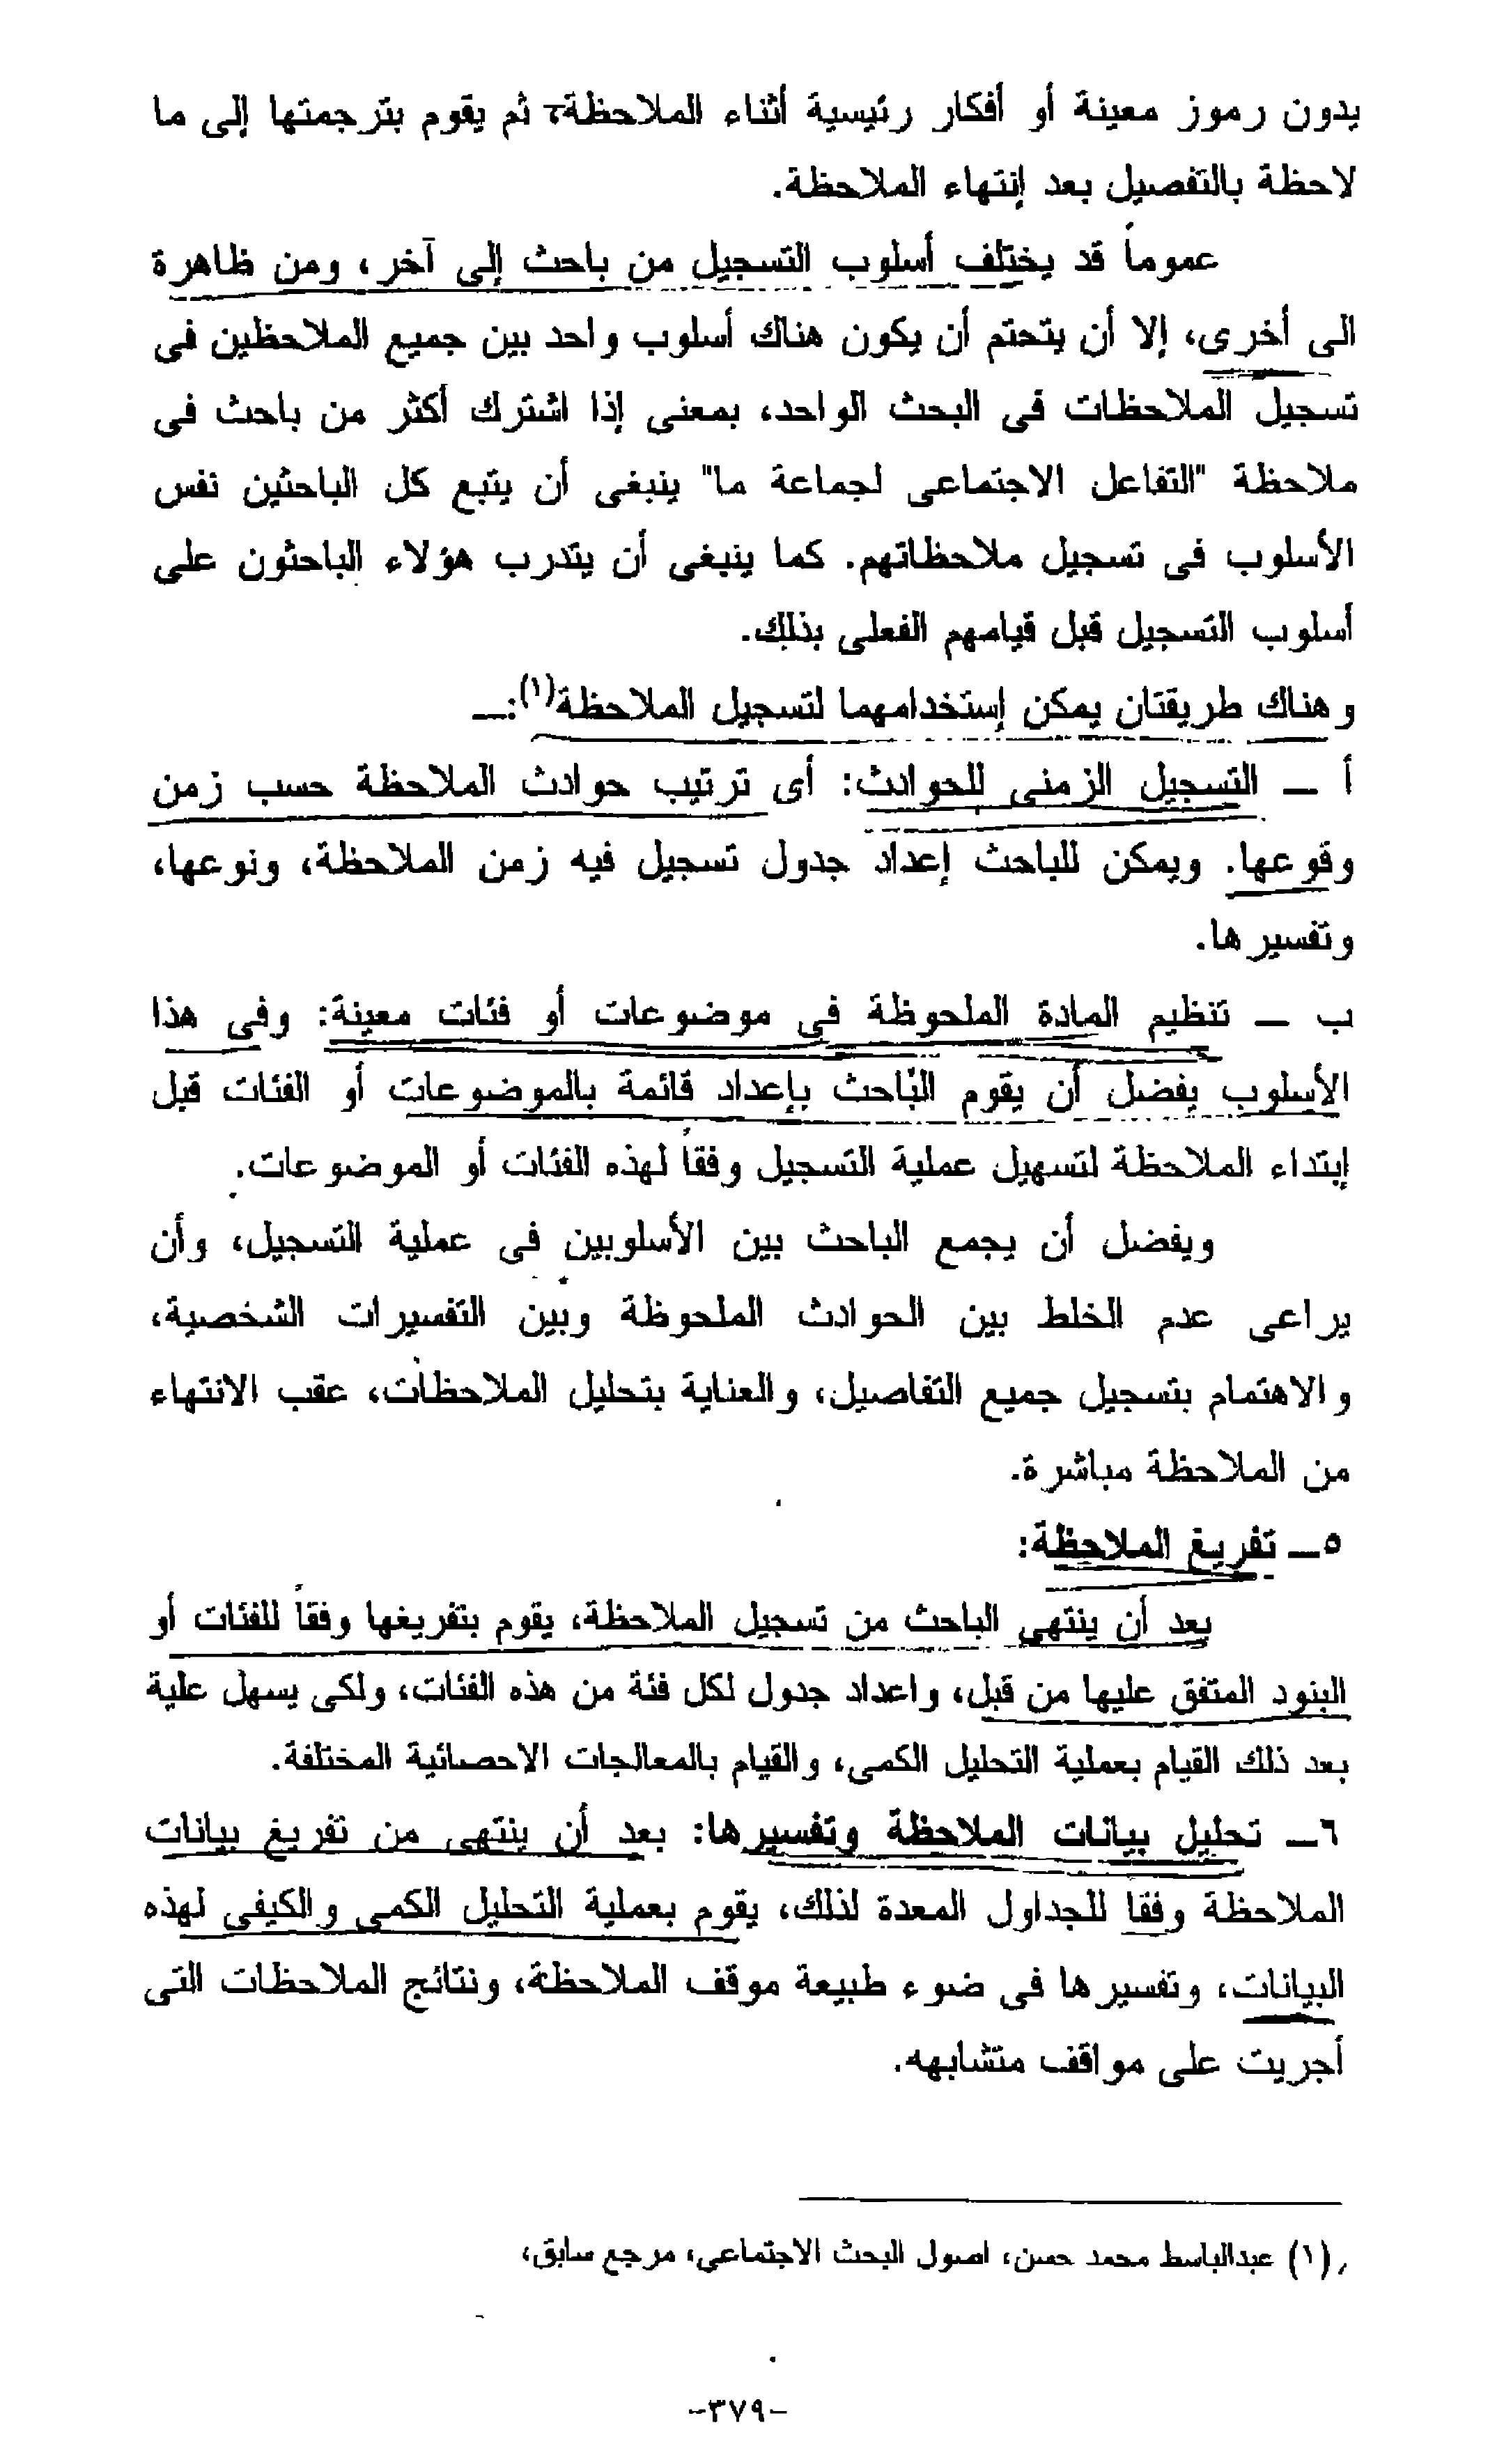 يدون رموز معينة أو أفكار رئيسية أثناء الملاحظة، ثم يقوم بترجمتها إلى ما
لاحظة بالتفصيل بعد إنتهاء الملاحظة.
عموماً قد يختلف أسلوب التسجيل من باحث إلى آخر، ومن ظاهرة
الى أخرى، إلا أن يتحتم أن يكون هناك أسلوب واحد بين جميع الملاحظين فى
تسجيل الملاحظات فى البحث الواحد، بمعنى إذا اشترك أكثر من باحث فى
ملاحظة "التفاعل الاجتماعى لجماعة ما" ينبغى أن يتبع كل الباحثين نفس
الأسلوب فى تسجيل ملاحظاتهم. كما ينبغى أن يتدرب هؤلاء الباحثون على
أسلوب التسجيل قبل قيامهم الفعلى بذلك.
وهناك طريقتان يمكن إستخدامهما لتسجيل الملاحظة(١):ـ
أ ـ التسجيل الزمنى للحوادث: أى ترتيب حوادث الملاحظة حسب زمن
وقوعها. ويمكن للباحث إعداد جدول تسجيل فيه زمن الملاحظة، ونوعها،
وتفسيرها.
ب ـ تنظيم المادة الملحوظة فى موضوعات أو فئات معينة: وفى هذا
الأسلوب يفضل أن يقوم الباحث بإعداد قائمة بالموضوعات أو الفئات قبل
إبتداء الملاحظة لتسهيل عملية التسجيل وفقاً لهذه الفئات أو الموضوعات.
ويفضل أن يجمع الباحث بين الأسلوبين فى عملية التسجيل، وأن
يراعى عدم الخلط بين الحوادث الملحوظة وبين التفسيرات الشخصية،
والاهتمام بتسجيل جميع التفاصيل، والعناية بتحليل الملاحظات، عقب الانتهاء
من الملاحظة مباشرة.
٥ـ تفريغ الملاحظة:
بعد أن ينتهى الباحث من تسجيل الملاحظة، يقوم بتفريغها وفقاً للفئات أو
البنود المتفق عليها من قبل، واعداد جدول لكل فئة من هذه الفئات، ولكى يسهل علية
بعد ذلك القيام بعملية التحليل الكمى، والقيام بالمعالجات الاحصائية المختلفة.
٦ـ تحليل بيانات الملاحظة وتفسيرها: بعد أن ينتهى من تفريغ بيانات
الملاحظة وفقا للجداول المعدة لذلك، يقوم بعملية التحليل الكمى والكيفى لهذه
البيانات، وتفسيرها فى ضوء طبيعة موقف الملاحظة، ونتائج الملاحظات التى
أجريت على مواقف متشابهه.
(١) عبدالباسط محمد حسن، اصول البحث الاجتماعي، مرجع سابق،
-٣٧٩-